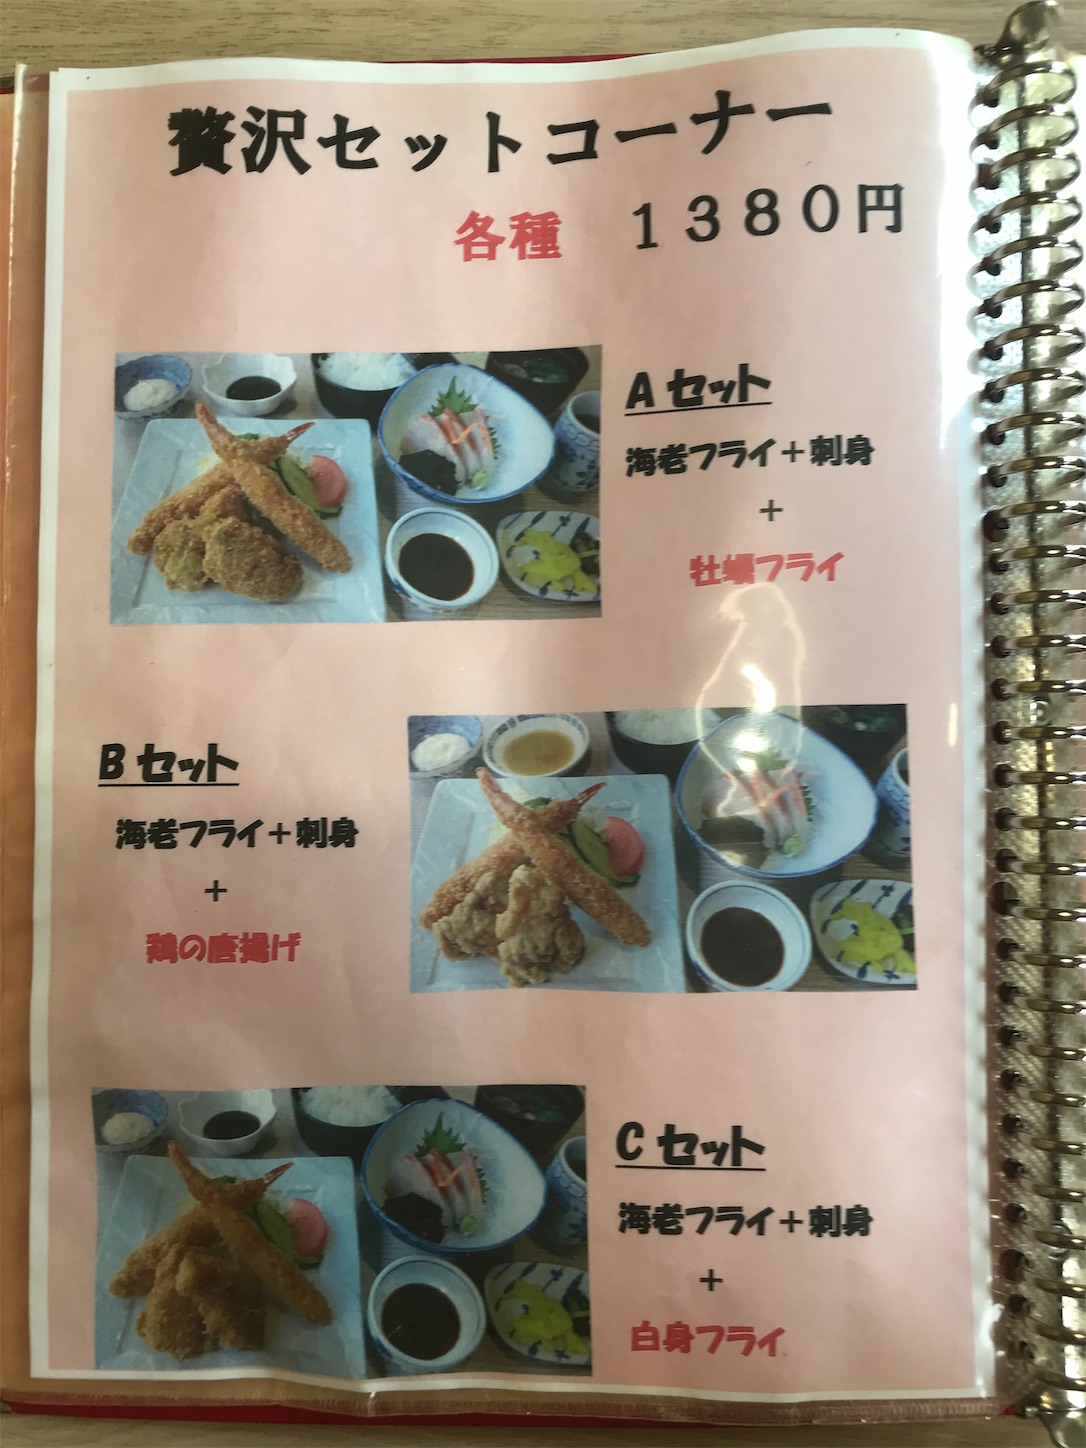 贅沢セットコーナー
各種 1380円
Aセット
海老フライ+刺身
+
牡蠣フライ
Bセット
海老フライ+刺身
+
鶏の唐揚げ
Cセット
海老フライ+刺身
+
白身フライ